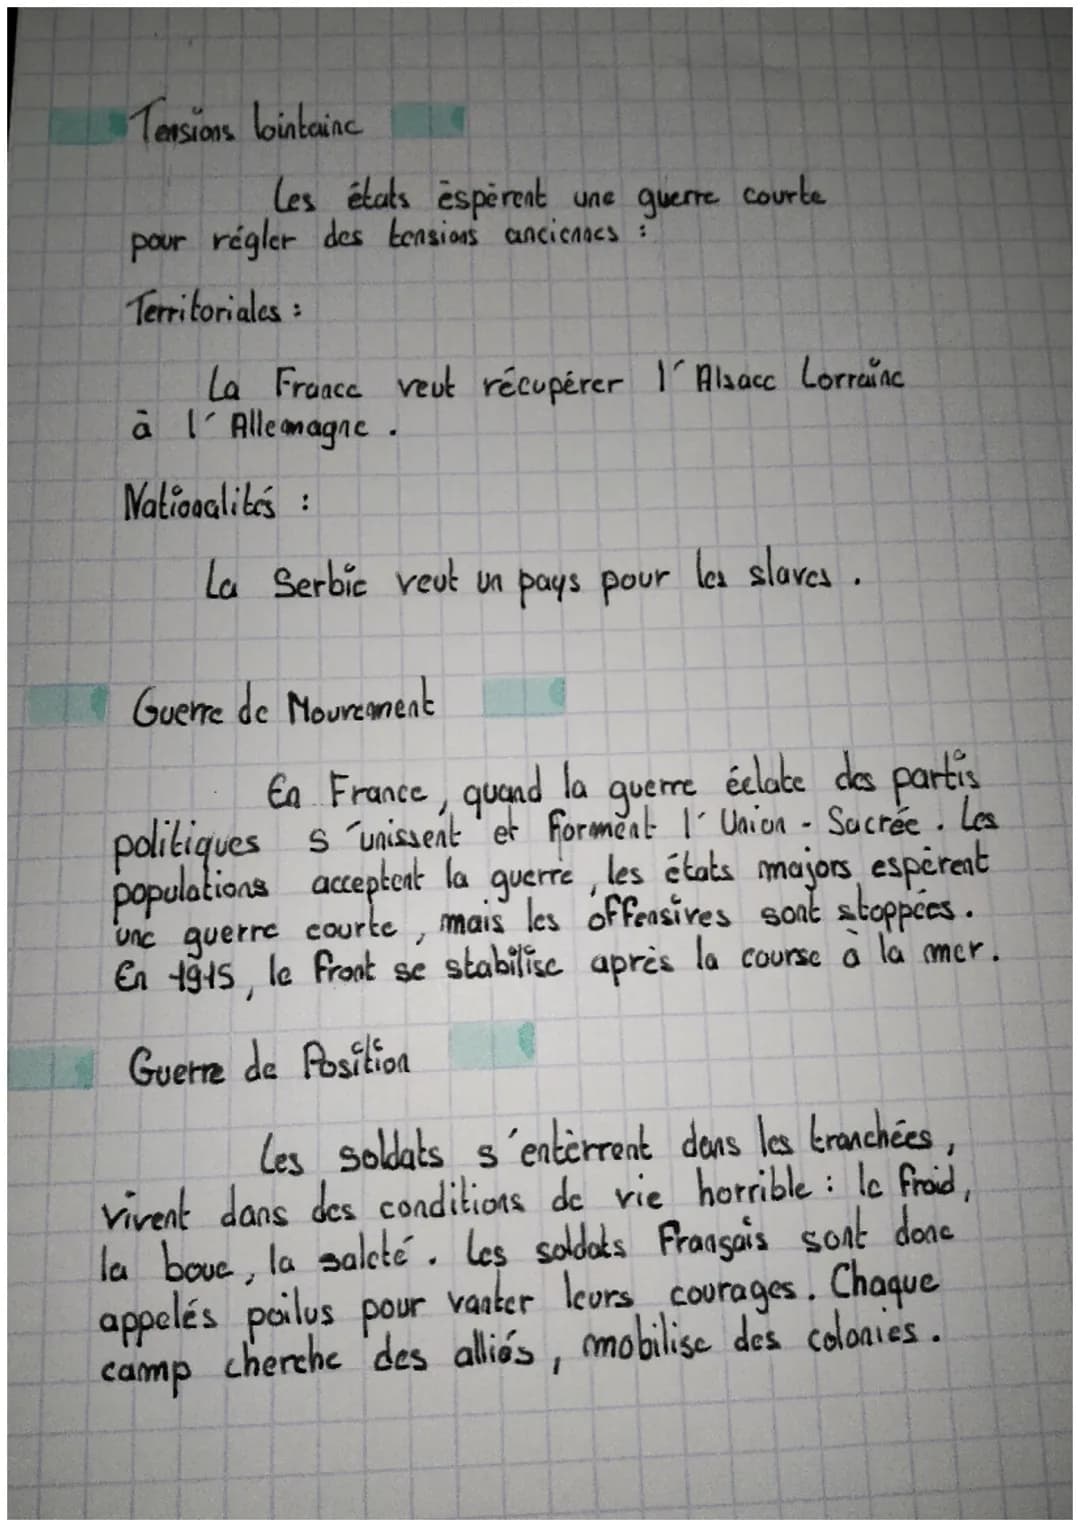 Tensions lointaine
Les états éspèrent une guerre courte
pour régler des tensions anciennes :
Territoriales :
La France veut récupérer l'Alsace Lorraine
à l'Allemagne .
Nationalités :
La Serbie veut un pays pour les slaves .
Guerre de Mouvement
En France, quand la guerre éclate des partis
politiques s'unissent et forment l'Union - Sacrée . Les
populations acceptent la guerre , les états majors espèrent
une guerre courte , mais les offensives sont stoppées .
En 1915, le front se stabilise après la course à la mer .
Guerre de Position
Les soldats s'entèrrent dans les tranchées ,
vivent dans des conditions de vie horrible : le froid ,
la boue , la saleté . Les soldats Français sont donc
appelés poilus pour vanter leurs courages . Chaque
camp cherche des alliés , mobilise des colonies .